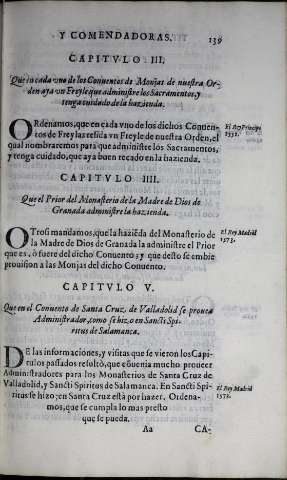 Y COMENDADORAS. 139
CAPITVLO III.
Que en cada vno de los Conuentos de Monjas de nuestra Or-
den aya vn Freyle que administre los Sacramentos, y
tenga cuidado de la hazienda.
ORdenamos, que en cada vno de los dichos Conuen-
tos de Freylas resida vn Freyle de nuestra Orden, el
qual nombraremos para que administre los Sacramentos,
y tenga cuidado, que aya buen recado en la hazienda.
El Rey Principe
1552.
CAPITVLO IIII.
Que el Prior del Monasterio de la Madre de Dios de
Granada administre la hazienda.
OTrosi mandamos, que la haziẽda del Monasterio de
la Madre de Dios de Granada la administre el Prior
que es, ò fuere del dicho Conuento; y que desto se embie
prouision a las Monjas del dicho Conuento.
El Rey Madrid
1573.
CAPITVLO V.
Que en el Conuento de Santa Cruz, de Valladolid se prouea
Administrador, como se hizo en Sancti Spi-
ritus de Salamanca.
DE las informaciones, y visitas que se vieron los Capi-
tulos passados resultò, que cõuenia mucho proueer
Administradores para los Monasterios de Santa Cruz de
Valladolid, y Sancti Spiritus de Salamanca. En Sancti Spi-
ritus se hizo; en Santa Cruz està por hazer. Ordena-
mos, que se cumpla lo mas presto
que se pueda.
El Rey Madrid
1573.
Aa CA-